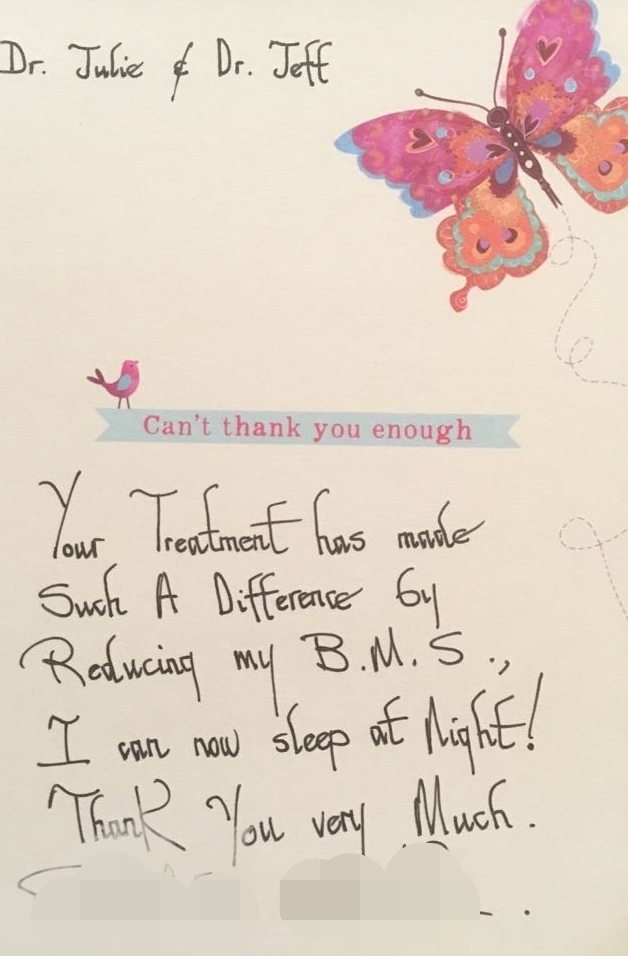 Dr. Julie & Dr. Jeff
Can't thank you enough
Your Treatment has made
Such A Difference by
Reducing my B.M.S.,
I can now sleep at Night!
Thank You very Much.